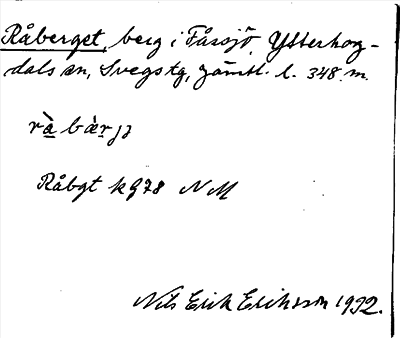 Råberget, berg i Fåssjö, Ytterhog-
dals sn, Svegs tg, Jämtl. l. 348 m.
rà bæ̀rjə
Råbgt kg78 NM
Nils Erik Eriksson 1932.